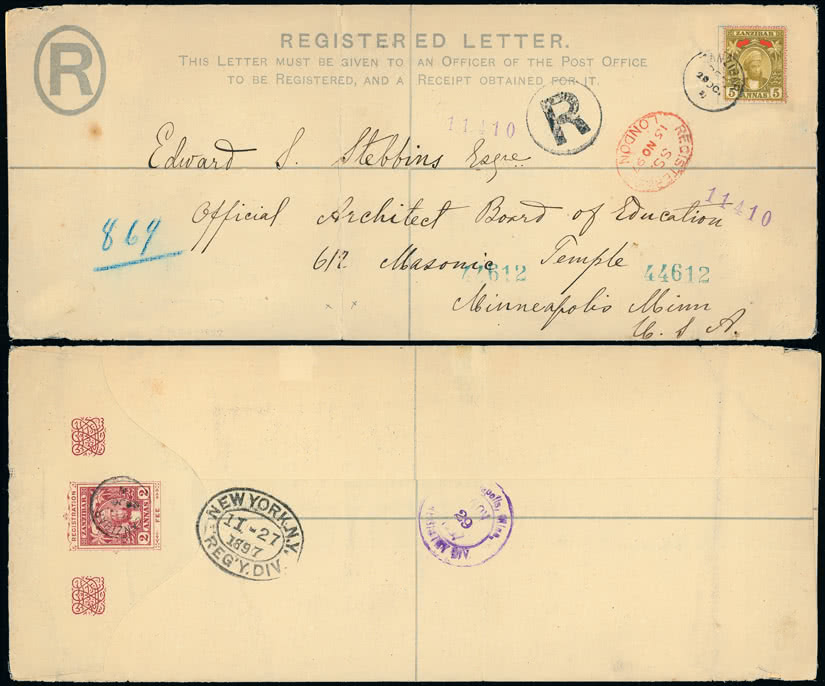 R
REGISTERED LETTER.
THIS LETTER MUST BE GIVEN TO AN OFFICER OF THE POST OFFICE
TO BE REGISTERED, AND A RECEIPT OBTAINED FOR IT.
ZANZIBAR
5 ANNAS 5
ZANZIBAR
R
11410
REGISTERED
LONDON
15 NO 97
Edward S. Stebbins Esqre
11410
869
Official Architect Board of Education
612 Masonic Temple
44612 44612
Minneapolis Minn
U. S. A.
REGISTRATION
ZANZIBAR
2 ANNAS 2
FEE
NEW YORK, N.Y.
11-27
1897
REG'Y. DIV.
Minn.
29